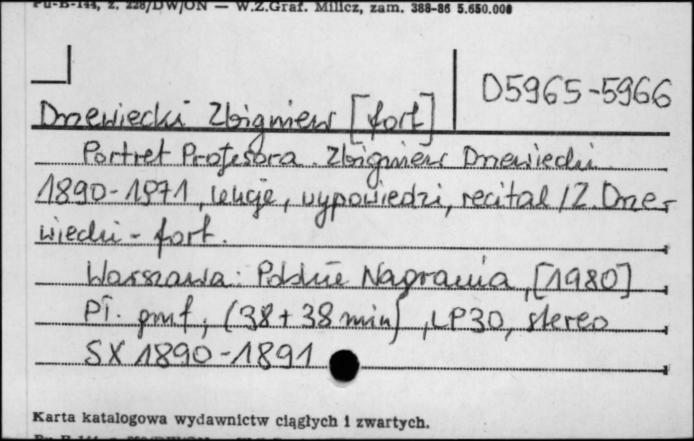 Pu-B-144, z. 228/DW/ON — W.Z.Graf. Milicz, zam. 388-86 5.650.000
D5965-5966
Drzewiecki Zbigniew [fort]
Portret Profesora. Zbigniew Drzewiecki
1890-1971, lekcje, wypowiedzi, recital / Z. Drze-
wiecki - fort.
Warszawa: Polskie Nagrania, [1980]
Pł. gmf, (38 + 38 min), LP30, stereo
SX 1890-1891
Karta katalogowa wydawnictw ciągłych i zwartych.